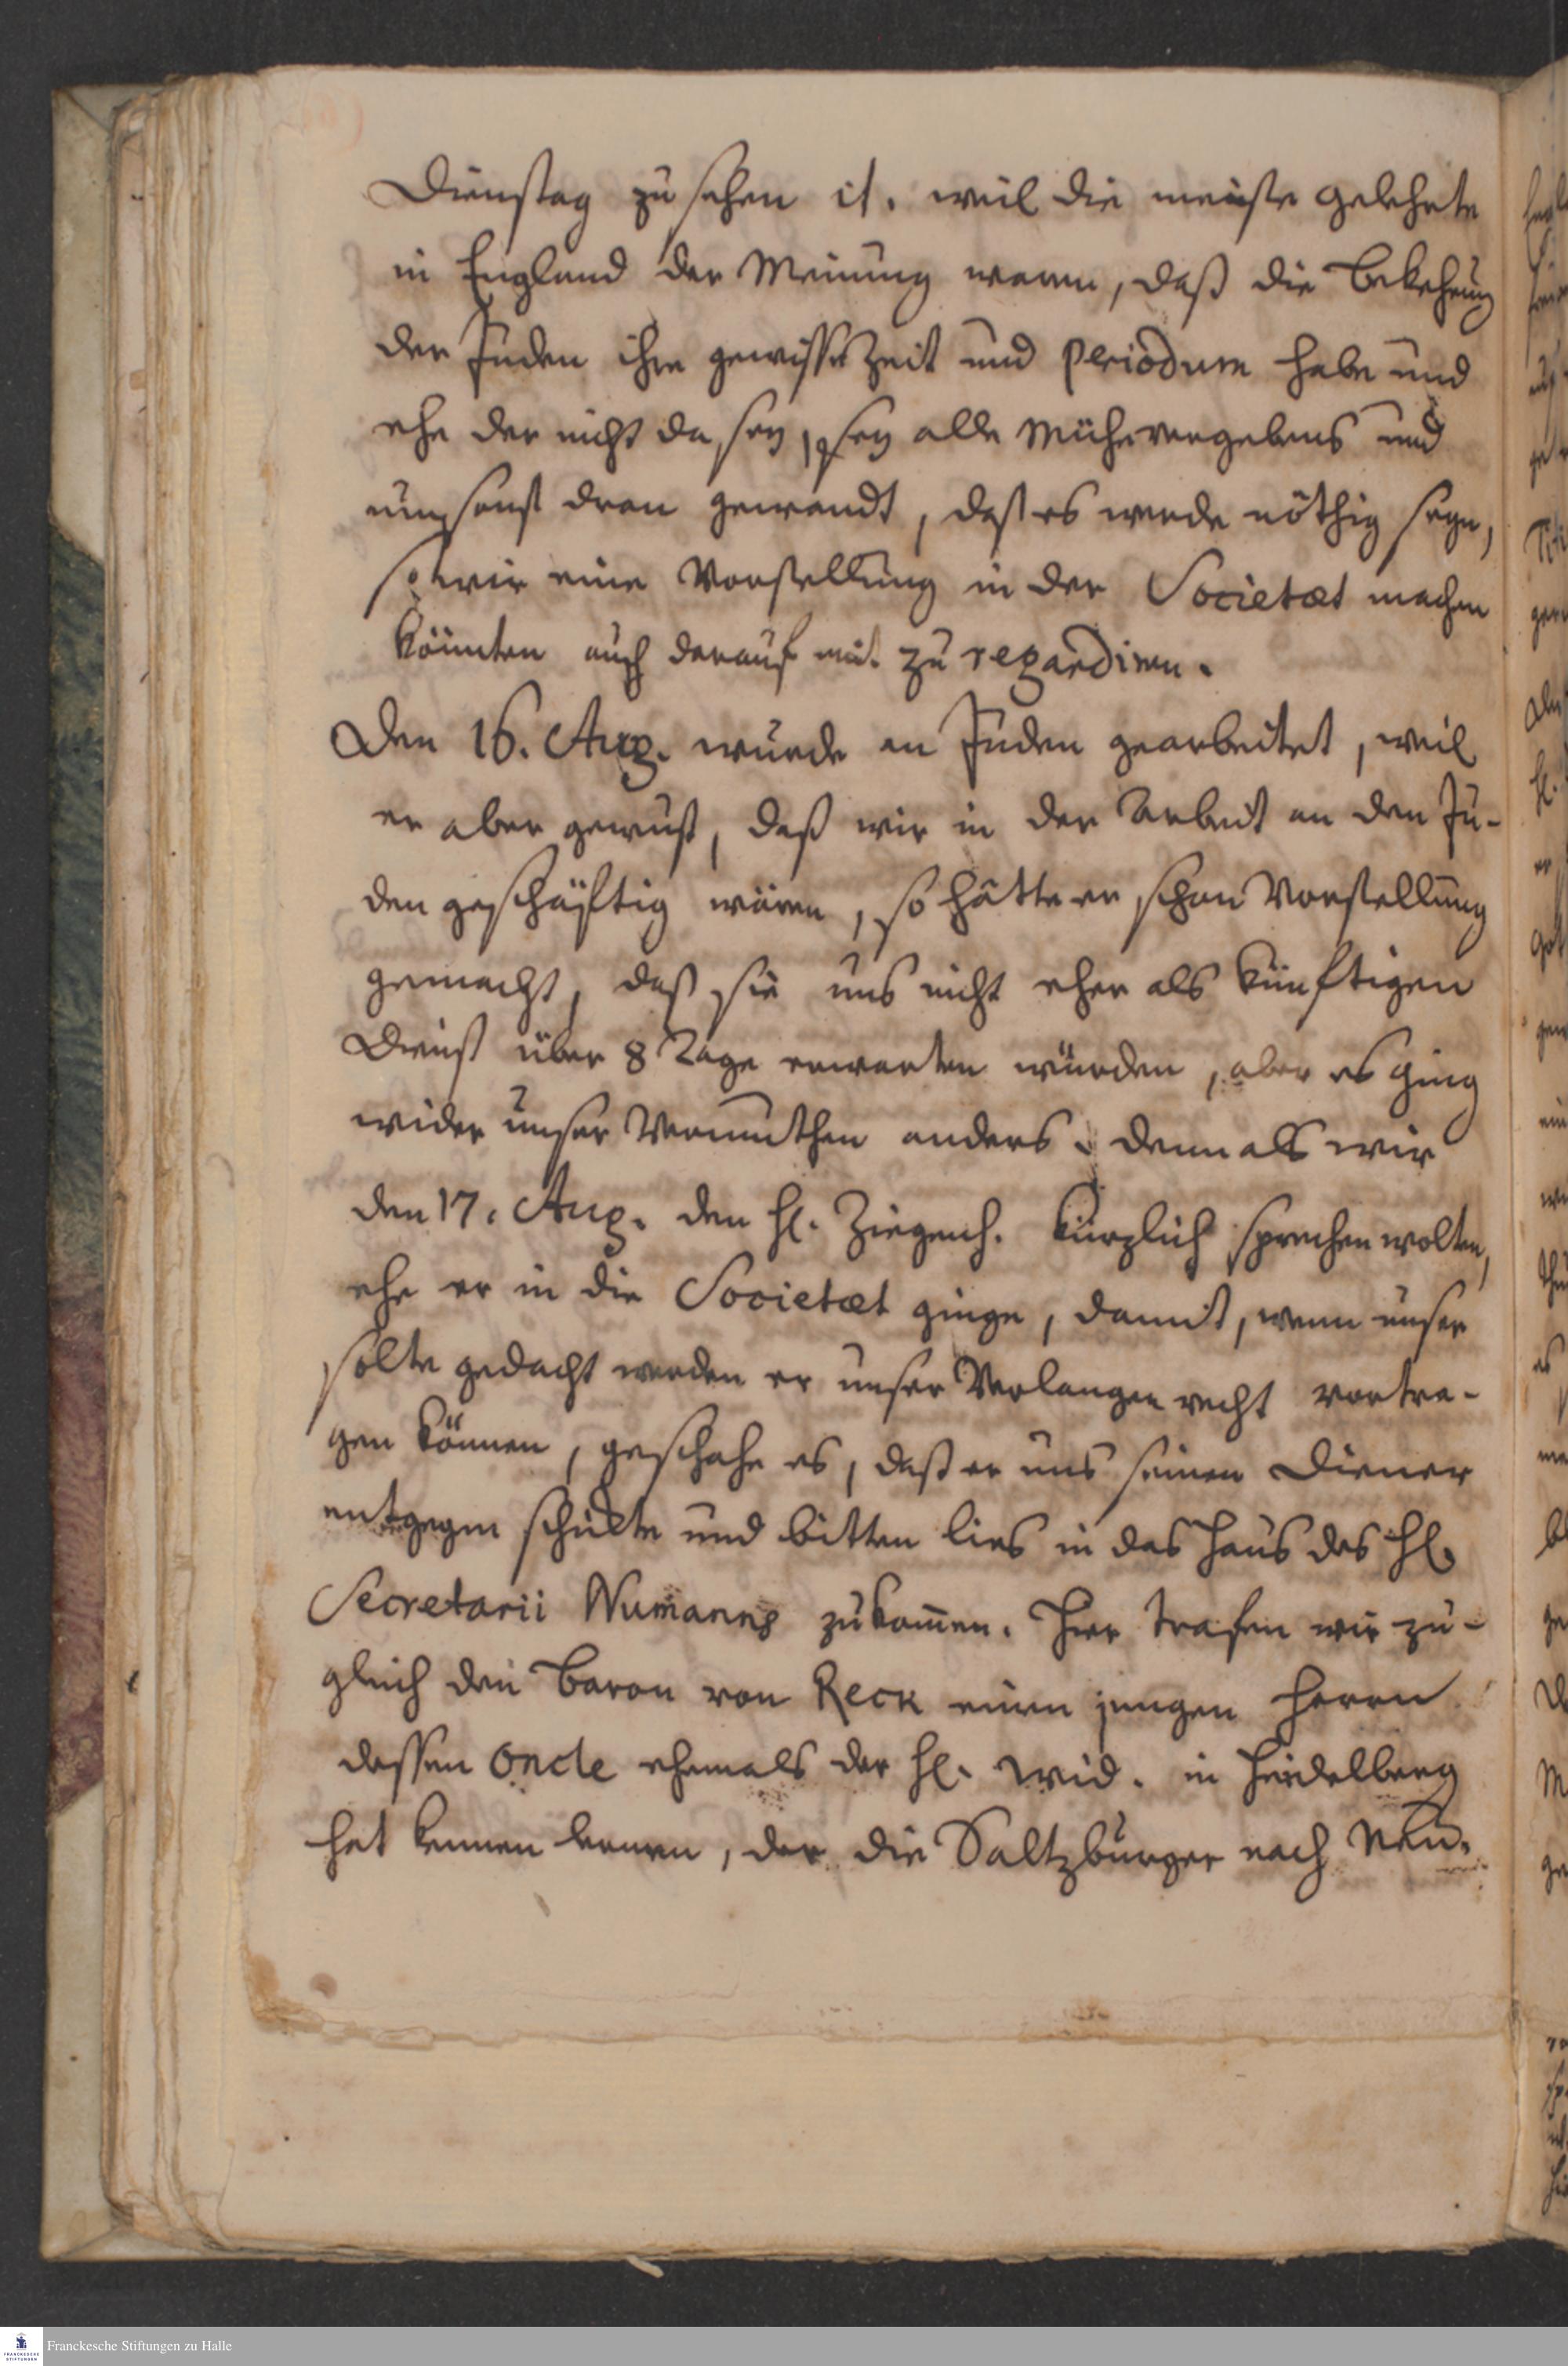 Dienstag zu sehen ist. weil die meiste Gelehrte
in England der Meinung waren, daß die Bekehrung
der Juden ihre gewisse Zeit und Periodum habe und
ehe der nicht da sey, sey alle Mühe vergebens und
umsonst dran gewandt, daß es werde nöthig seyn,
so wir eine Vorstellung in der Societæt machen
könnten auch darauf mit zu regardiren.
Den 16. Aug. wurde an Juden gearbeitet, weil
er aber gewust, daß wir in der Arbeit an den Ju-
den geschäftig wären, so hätte er schon Vorstellung
gemacht, daß sie uns nicht eher als künftigen
Dienst über 8 Tage erwarten würden, aber es ging
wider unser Vermuthen anders. denn als wir
den 17. Aug. den H. Ziegenh. kürzlich sprechen wolten,
ehe er in die Societæt ginge, damit, wenn unser
solte gedacht werden er unser Verlangen recht vortra-
gen können, geschahe es, daß er uns seinen Diener
entgegen schickte und bitten lies in das Haus des H.
Secretarii Numanns zu kom̄en. Hier trafen wir zu-
gleich den Baron von Reck einen jungen Herrn
dessen Oncle ehemals der H. Wid. in Heidelberg
hat kennen lernen, der die Saltzburger nach Neu-
Franckesche Stiftungen zu Halle